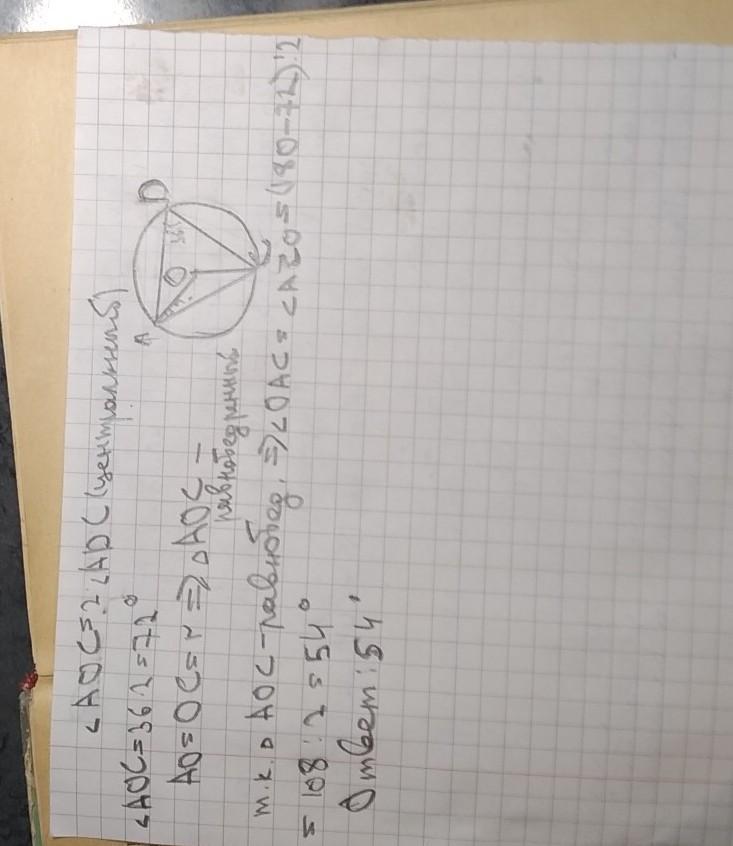 ∠AOC=2·∠ADC (центральный)
∠AOC=36·2=72°
AO=OC=r ⇒ △AOC –
равнобедренный
т.к. △ AOC – равнобед. ⇒ ∠OAC= ∠ACO = (180-72):2
= 108 : 2 = 54°
Ответ: 54°
A
O
D
36
C